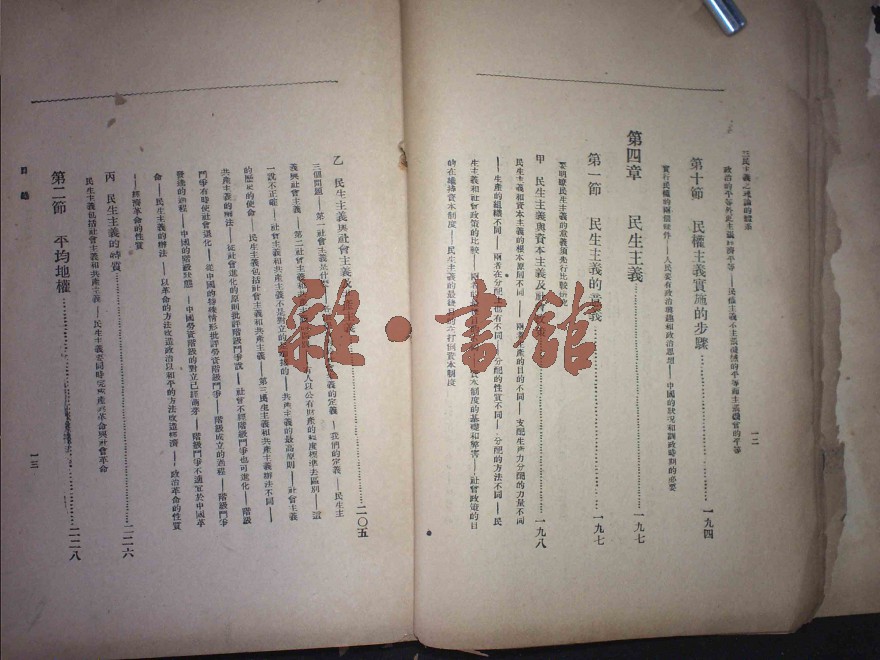 三民主義之理論的體系
一二
政治的平等外並主張經濟平等——民權主義不主張機械的平等而主張機會的平等
第十節 民權主義實施的步驟……一九四
實行民權的兩個條件——人民要有政治興趣和政治思想——中國的狀況和訓政時期的必要
第四章 民生主義……一九七
第一節 民生主義的意義……一九七
要明瞭民生主義的意義須先行比較研究
甲 民生主義與資本主義及……一九八
民生主義和資本主義的根本原則不同——兩者生產的目的不同——支配生產力分配的力量不同
——生產的組織不同——兩者在分配上也有不同——分配的性質不同——分配的方法不同——民
生主義和社會政策的比較——兩者的……資本制度的基礎和弊害——社會政策的目
的在維持資本制度——民生主義的最後目的在打倒資本制度
乙 民生主義與社會主義及……二〇五
三個問題——第一社會主義是什麼……義的定義——我們的定義——民生主
義與社會主義——第二社會主義……有人以公有財產的程度標準去區別——這
一說不正確——社會主義和共產主義不是對立的……的——共產主義的最高原則——社會主義
共產主義的辦法——從社會進化的原則批評階級鬥爭說——社會不經階級鬥爭也可進化——階級
的歷史的使命——民生主義包括社會主義和共產主義——第三民生主義和共產主義辦法不同——
鬥爭有時使社會退化——從中國的特殊情形批評勞資階級鬥爭——階級成立的過程——階級鬥爭
發達的過程——中國的階級狀態——中國勞資階級的對立已經尚旁——階級鬥爭不適宜於中國革
命——民生主義的辦法——以革命的方法改造政治以和平的方法改造經濟——政治革命的性質
——經濟革命的性質
丙 民生主義的特質……二二六
民生主義包括社會主義和共產主義——民生主義要同時完成產業革命與社會革命
第二節 平均地權……二二八
目錄
一三
雜·書館